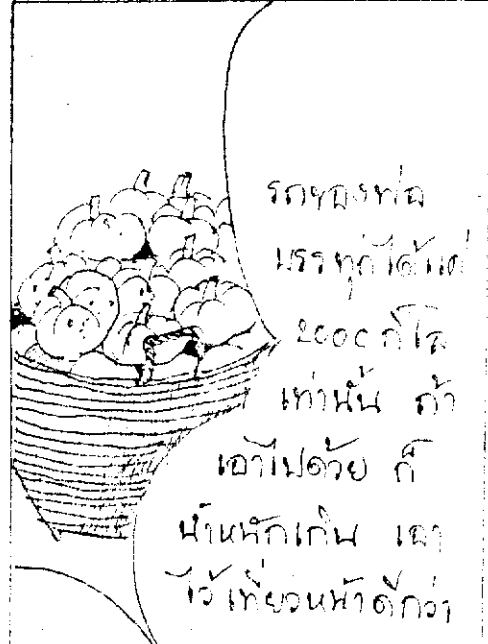 รถของพ่อ
บรรทุกได้แค่
2000 กิโล
เท่านั้น ถ้า
เอาไปด้วย ก็
น้ำหนักเกิน เอา
ไว้เที่ยวหน้าดีกว่า